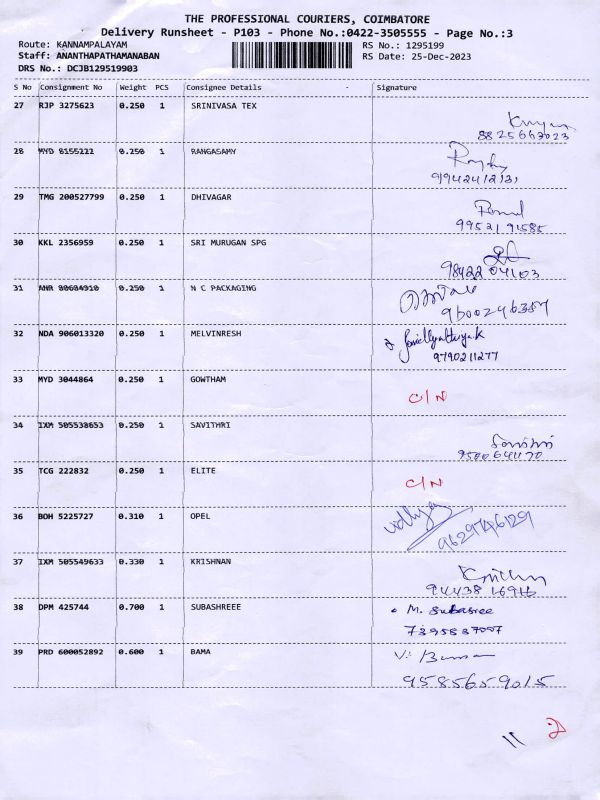 THE PROFESSIONAL COURIERS, COIMBATORE
Delivery Runsheet - P103 - Phone No.:0422-3505555 - Page No.:3
Route: KANNAMPALAYAM RS No.: 1295199
Staff: ANANTHAPATHAMANABAN RS Date: 25-Dec-2023
DRS No.: DCJB129519903
S No Consignment No Weight PCS Consignee Details - Signature
27 RJP 3275623 0.250 1 SRINIVASA TEX
8825663023
28 MYD 8155222 0.250 1 RANGASAMY
29 TMG 200527799 0.250 1 DHIVAGAR
9952191585
30 KKL 2356959 0.250 1 SRI MURUGAN SPG
9842204103
31 ANR 80684910 0.250 1 N C PACKAGING
9600246357
32 NDA 906013320 0.250 1 MELVINRESH
9790211277
33 MYD 3044864 0.250 1 GOWTHAM
C/N
34 IXM 505538653 0.250 1 SAVITHRI
35 TCG 222832 0.250 1 ELITE
C/N
36 BOH 5225727 0.310 1 OPEL
Vidhya
9629746129
37 IXM 505549633 0.330 1 KRISHNAN
38 DPM 425744 0.700 1 SUBASHREEE
M. Subasree
39 PRD 600052892 0.600 1 BAMA
9585659015
11 2